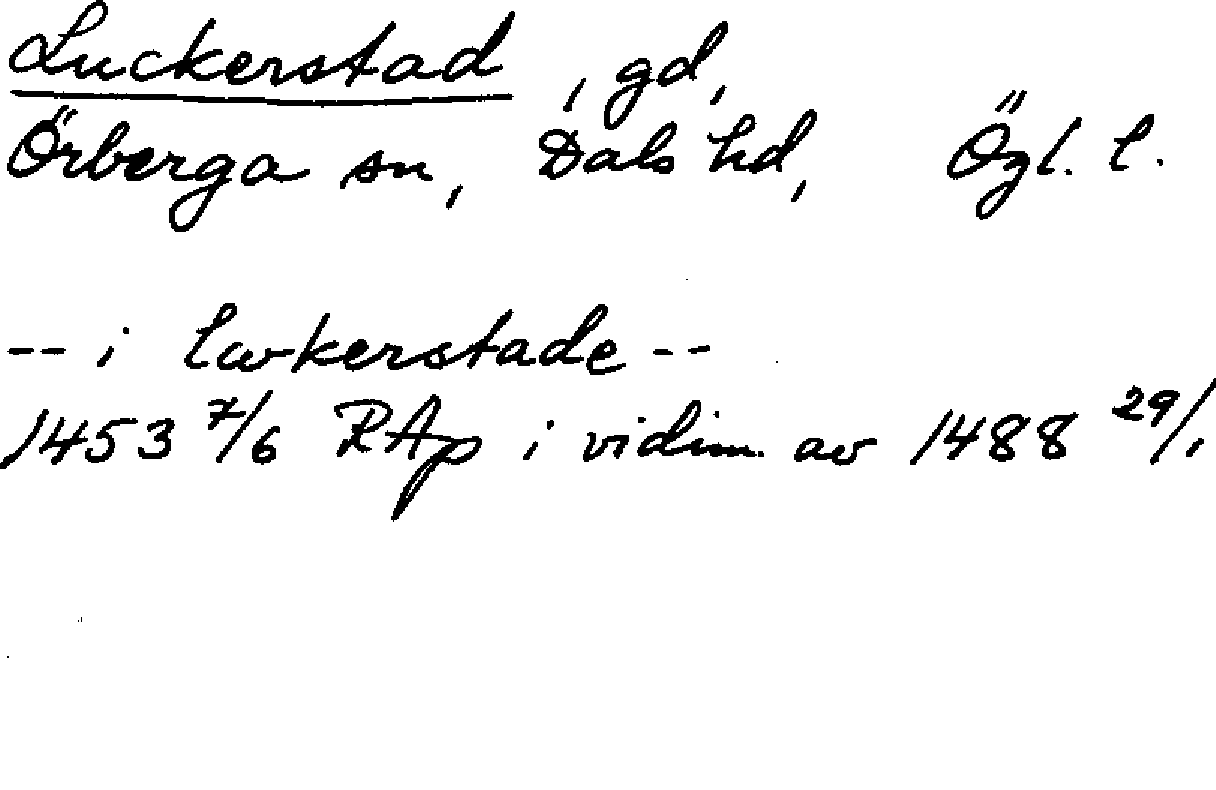 Luckerstad, gd,
Örberga sn, Dals hd, Ögl. l.
-- i lwkerstade --
1453 7/6 RAp i vidim. av 1488 29/1